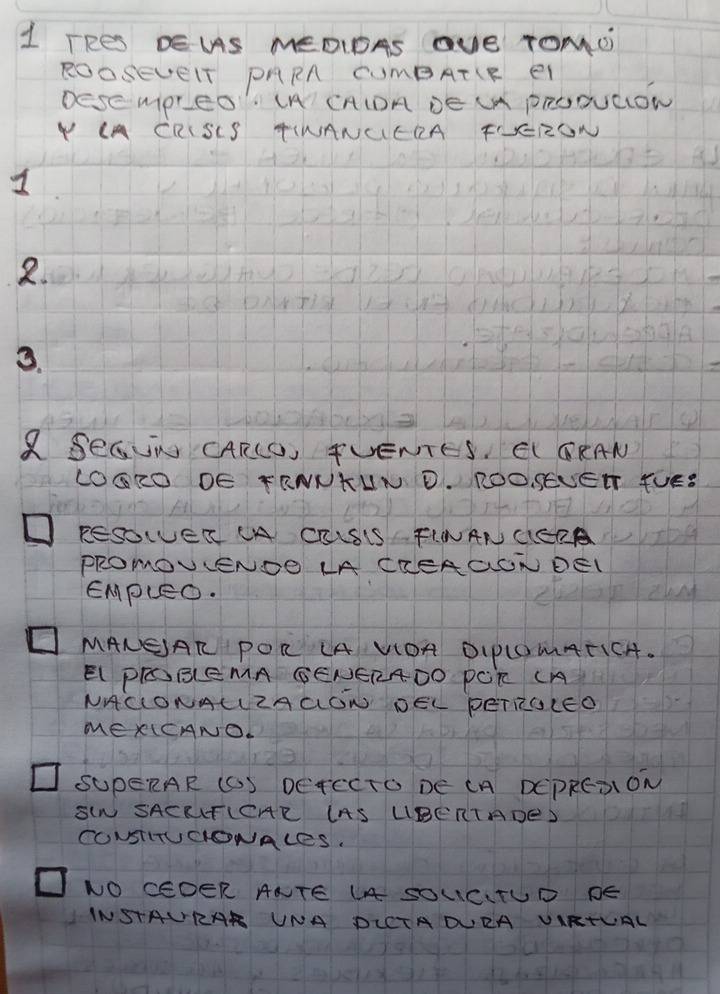 1 TRES DE LAS MEDIDAS QUE TOMÓ
ROOSEVELT PARA CUMBATIR El
DESEMPLEO. LA CAIDA DE LA PRODUCIÓN
Y LA CRISIS FINANCIERA FUERON
1.
2.
3.
2 SEGÚN CARLOS FUENTES. El GRAN
LOGRO DE FRANKLIN D. ROOSEVELT FUE:
RESOLVER LA CRISIS FINANCIERA
PROMOVIENDO LA CREACIÓN DEl
EMPLEO.
MANEJAR POR LA VIDA DIPLOMATICA.
El PROBLEMA GENERADO POR LA
NACIONALIZACIÓN DEL PETROLEO
MEXICANO.
SUPERAR LOS DEFECTO DE LA DEPRESIÓN
SIN SACRIFICAR LAS LIBERTADES
CONSTITUCIONALES.
NO CEDER ANTE LA SOLICITUD DE
INSTAURAR UNA DICTADURA VIRTUAL